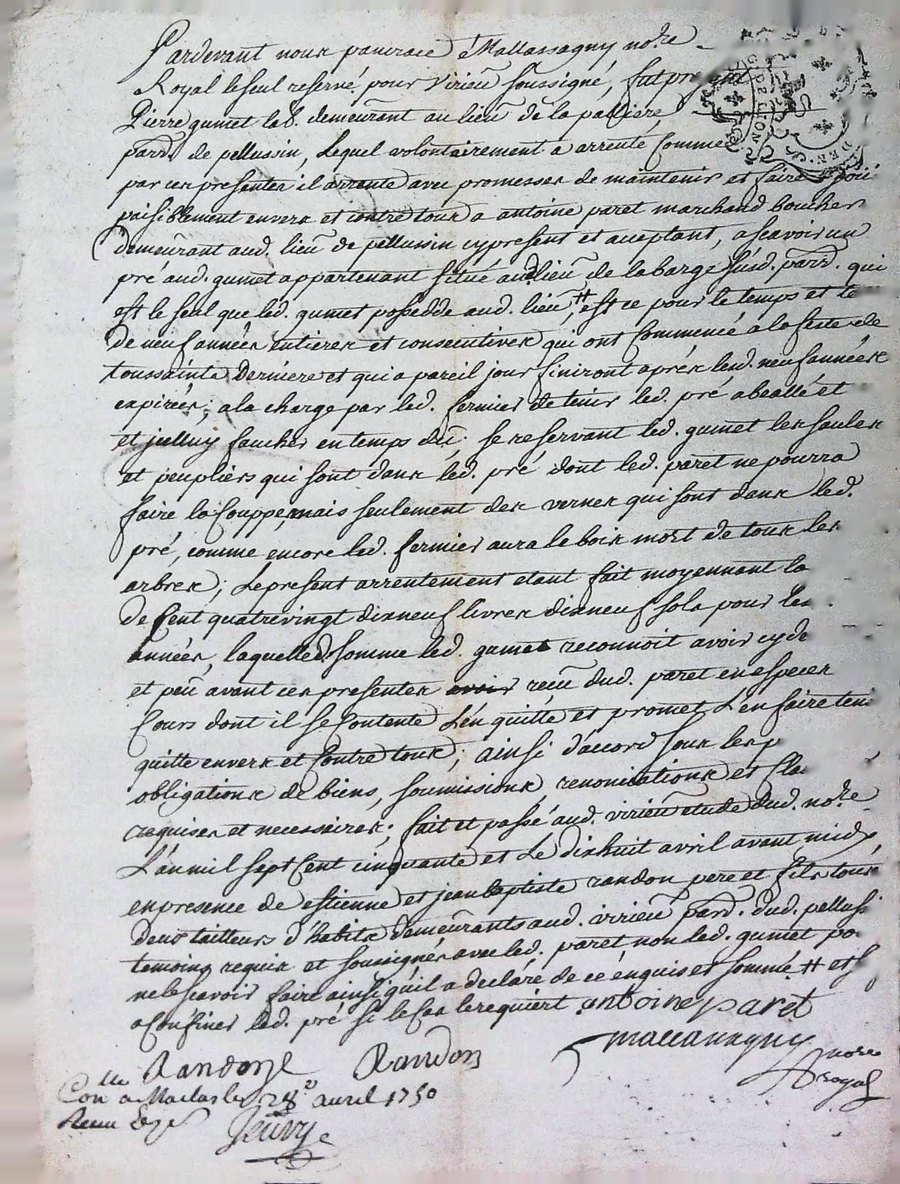 Pardevant nous pancrace Mallassagny no.re
Royal le seul reservé, pour virieu soussigné, fut present
Pierre gumet lab. demeurant au lieu de la palliere
parr. de pellussin, Lequel volontairement a arrenté Comme
par ces presentes il arrente avec promesses de maintenir et faire
paisiblement envers et contre tous a antoine paret marchand boucher
demeurant aud. lieu de pellussin cy present et acceptant, a scavoir un
pré aud. gumet appartenant situé aud. lieu de la barge susd. parr. qui
est le seul que led. gumet possedde aud. lieu, # est ce pour le temps et te
de neuf années entieres et consecutives qui ont Commencé a la feste de
toussaints derniere et qui a pareil jour finiront apres lesd. neuf années
expirées; a la charge par led. fermier de tenir led. pré abeallé et
et faucher en temps dû; se reservant led. gumet les saules
et peupliers qui sont dans led. pré dont led. paret ne pourra
faire la Couppe, mais seulement des vernes qui sont dans led.
pré, comme encore led. fermier aura le bois mort de tous les
arbres; Le present arrentement etant fait moyennant la
de Cent quatrevingt dixneuf livres dixneuf sols pour les
années, laquelle somme led. gumet reconnoit avoir cy de
et peu avant ces presentes receu dud. paret en especes
Cours dont il se Contente L'en quitte et promet L'en faire teni
quitte envers et Contre tous; ainsi d'accord sous les p
obligations de biens, soumissions renonciations et cla
requises et necessaires; fait et passé aud. virieu etude dud. no.re
L'an mil sept Cent cinquante et Le dixhuit avril avant midy
en presence de estienne et jean baptiste randon pere et fils tous
deux tailleurs d'habits demeurants aud. virieu parr. dud. pellussi
temoins requis et soussignés avec led. paret non led. gumet po
ne le scavoir faire ainsi qu'il a declaré de ce enquis et sommé # et s
a Confiner led. pré si le Cas le requiert antoine paret
Randon Randon
no.re
royal
Con. a Maclas le 28 avril 1750